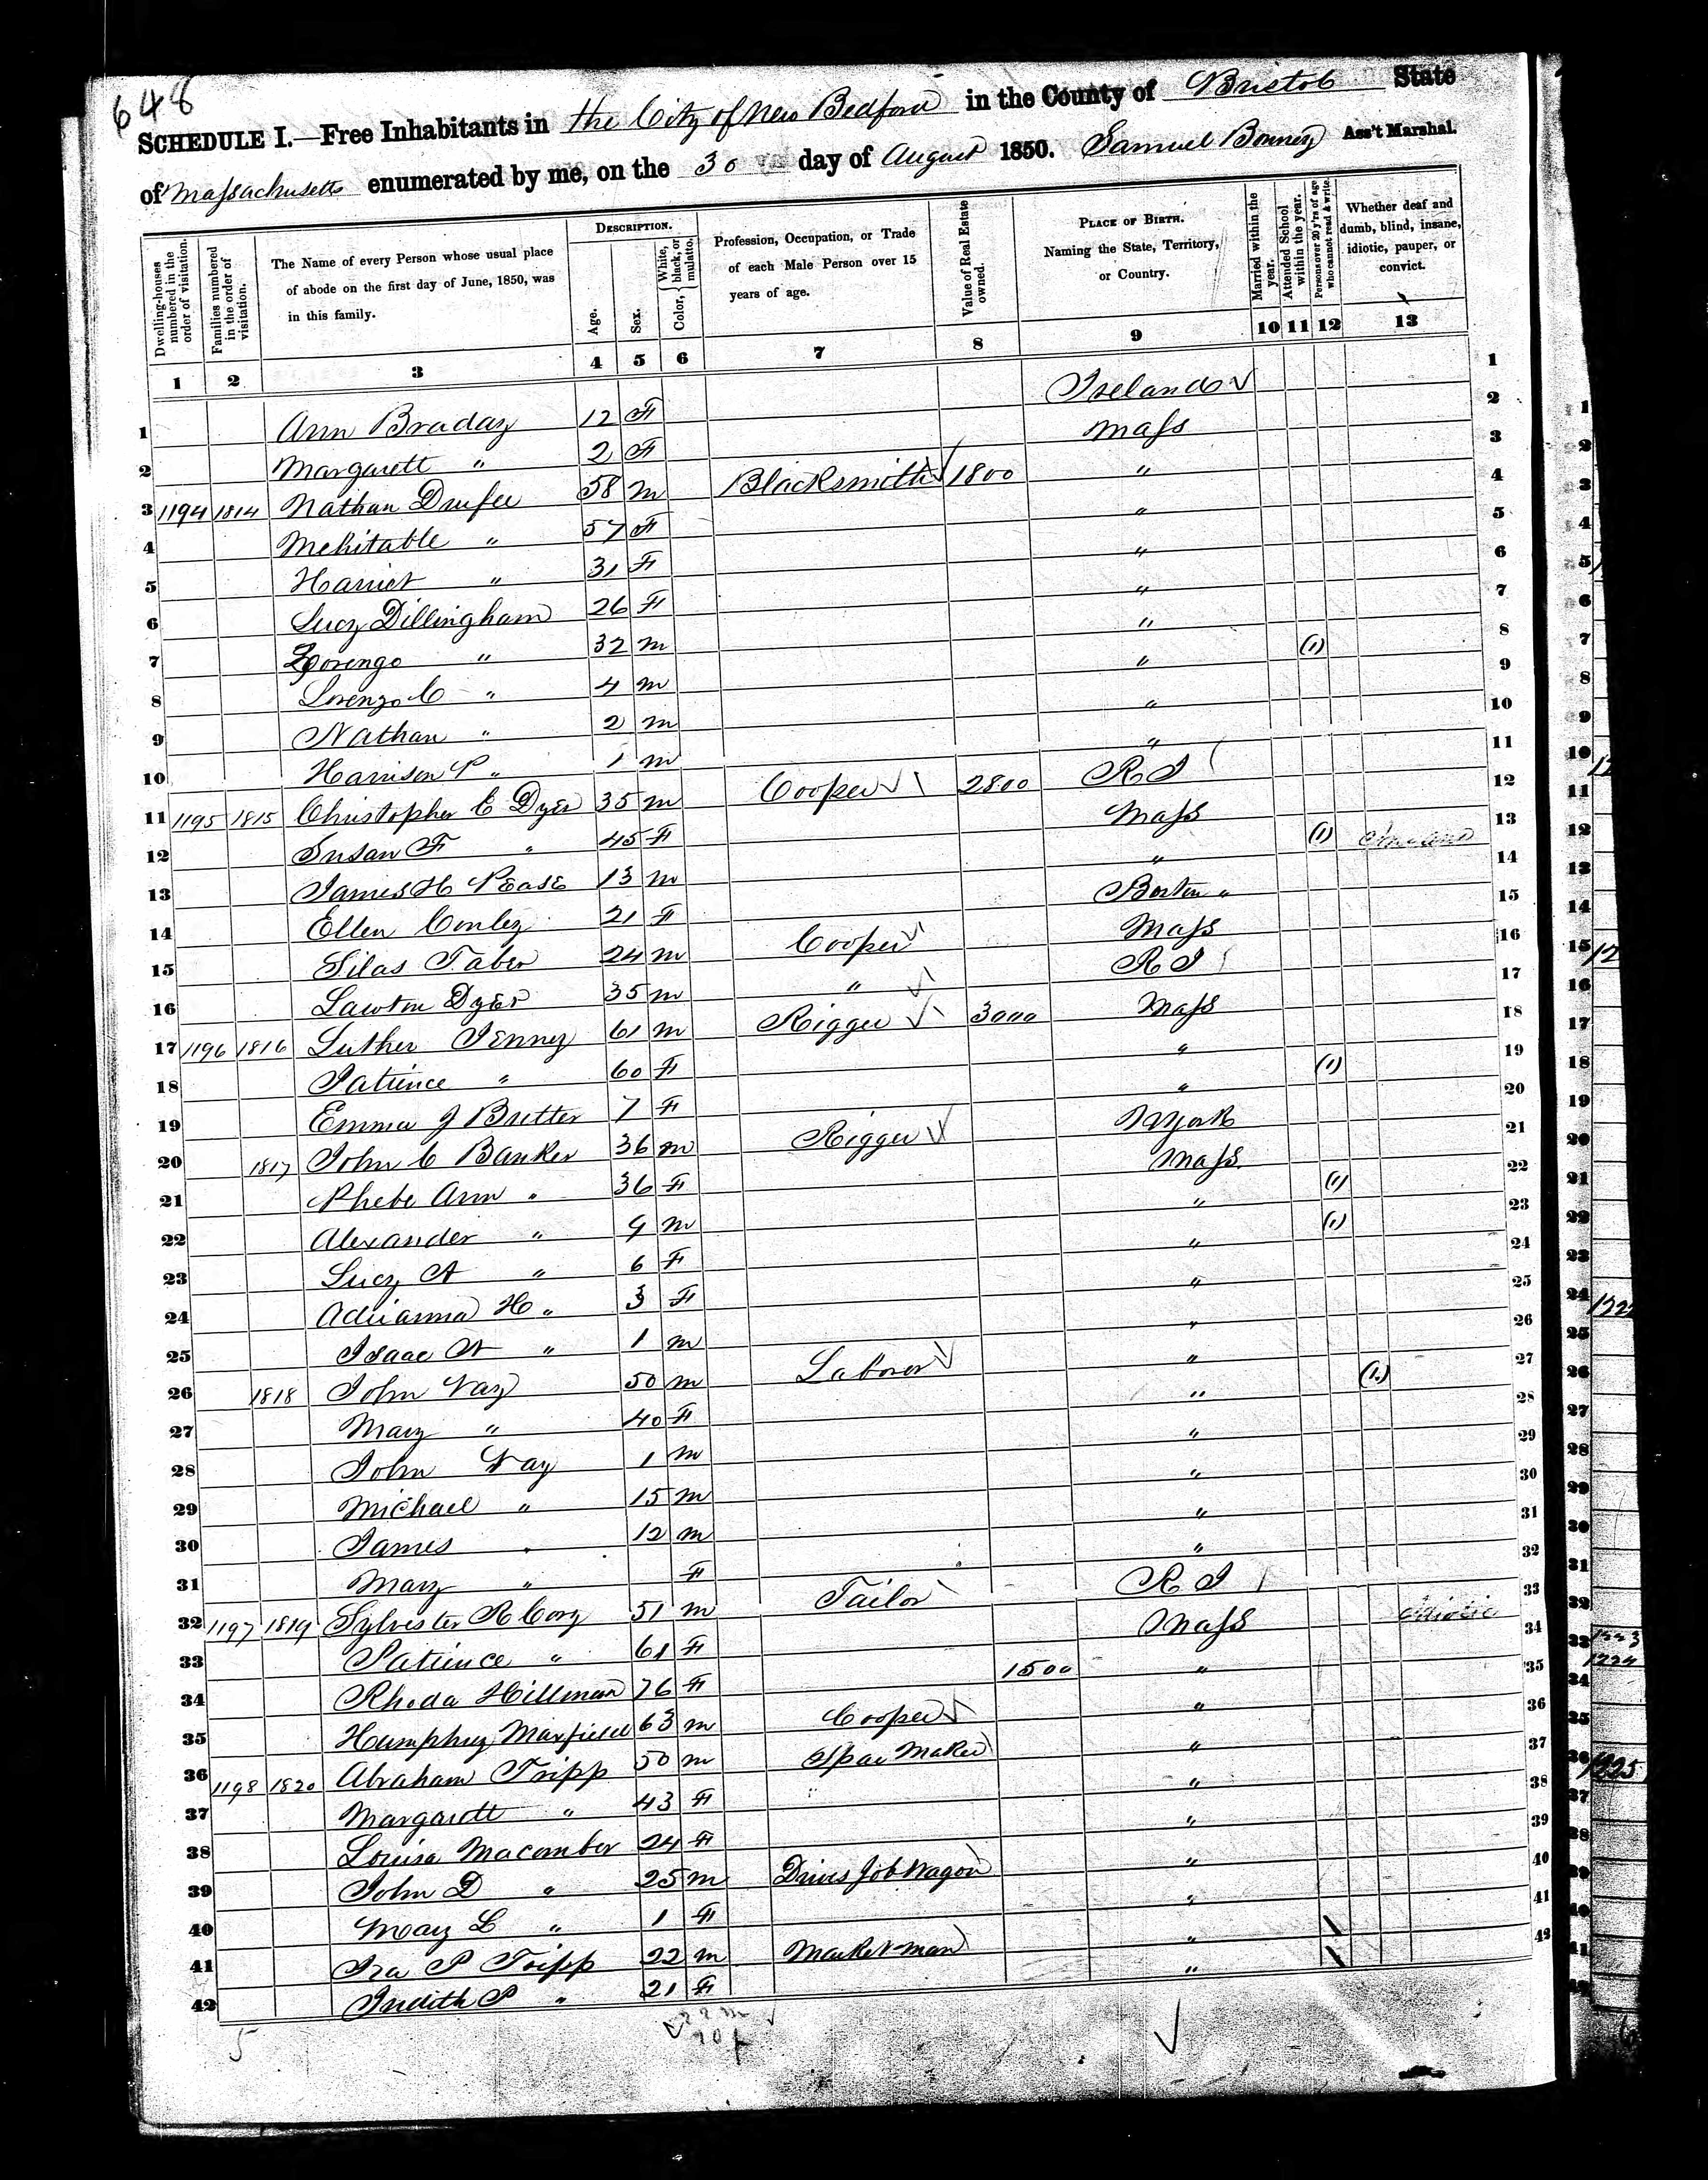 648
SCHEDULE I.—Free Inhabitants in the City of New Bedford in the County of Bristol State
of Massachusetts enumerated by me, on the 30 day of August 1850. Samuel Bonney Ass't Marshal.
Dwelling-houses numbered in the order of visitation.
Families numbered in the order of visitation.
The Name of every Person whose usual place of abode on the first day of June, 1850, was in this family.
DESCRIPTION.
Age.
Sex.
Color, White, black, or mulatto.
Profession, Occupation, or Trade of each Male Person over 15 years of age.
Value of Real Estate owned.
PLACE OF BIRTH. Naming the State, Territory, or Country.
Married within the year.
Attended School within the year.
Persons over 20 y'rs of age who cannot read & write.
Whether deaf and dumb, blind, insane, idiotic, pauper, or convict.
1 2 3 4 5 6 7 8 9 10 11 12 13
1 Ann Braday 12 F Ireland 1
2 Margarett " 2 F Mass 2
3 1194 1814 Nathan Drufee 58 m Blacksmith 1800 " 3
4 Mehitable " 57 F " 4
5 Harriet " 31 F " 5
6 Lucy Dillingham 26 F " 6
7 Lorenzo " 32 m " 7
8 Lorenzo C " 4 m " (1) 8
9 Nathan " 2 m " 9
10 Harrison P " 1 m " 10
11 1195 1815 Christopher C Dyer 35 m Cooper 2800 R I 11
12 Susan F " 45 F Mass 12
13 James H Pease 13 m " (1) 13
14 Ellen Conley 21 F Boston " 14
15 Silas Taber 24 m Cooper Mass 15
16 Lawton Dyer 35 m " R I 16
17 1196 1816 Luther Jenney 61 m Rigger 3000 Mass 17
18 Patience " 60 F " 18
19 Emma J Britter 7 F " (1) 19
20 1817 John C Banker 36 m Rigger N York 20
21 Phebe Ann " 36 F Mass 21
22 Alexander " 9 m " (1) 22
23 Lucy A " 6 F " (1) 23
24 Adrianna H " 3 F " 24
25 Isaac A " 1 m " 25
26 1818 John Vay 50 m Laborer " 26
27 Mary " 40 F " (1.) 27
28 John Vay 1 m " 28
29 Michael " 15 m " 29
30 James " 12 m " 30
31 Mary " F " 31
32 1197 1819 Sylvester R Cory 51 m Tailor R I 32
33 Patience " 61 F Mass Idiotic 33
34 Rhoda Hillman 76 F 1500 " 34
35 Humphrey Maxfield 63 m Cooper " 35
36 1198 1820 Abraham Tripp 50 m Spar Maker " 36
37 Margarett " 43 F " 37
38 Louisa Macomber 24 F " 38
39 John D " 25 m Drives Job Wagon " 39
40 Mary L " 1 F " 40
41 Ira P Tripp 22 m Market-man " 41
42 Judith P " 21 F " 42
5